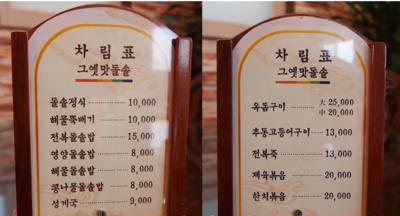 차림표
그옛맛돌솥
돌솥정식 10,000
해물뚝배기 10,000
전복돌솥밥 15,000
영양돌솥밥 8,000
해물돌솥밥 8,000
콩나물돌솥밥 8,000
성게국 9,000
차림표
그옛맛돌솥
옥돔구이 大 25,000
中 20,000
추동고등어구이 13,000
전복죽 13,000
제육볶음 20,000
한치볶음 20,000